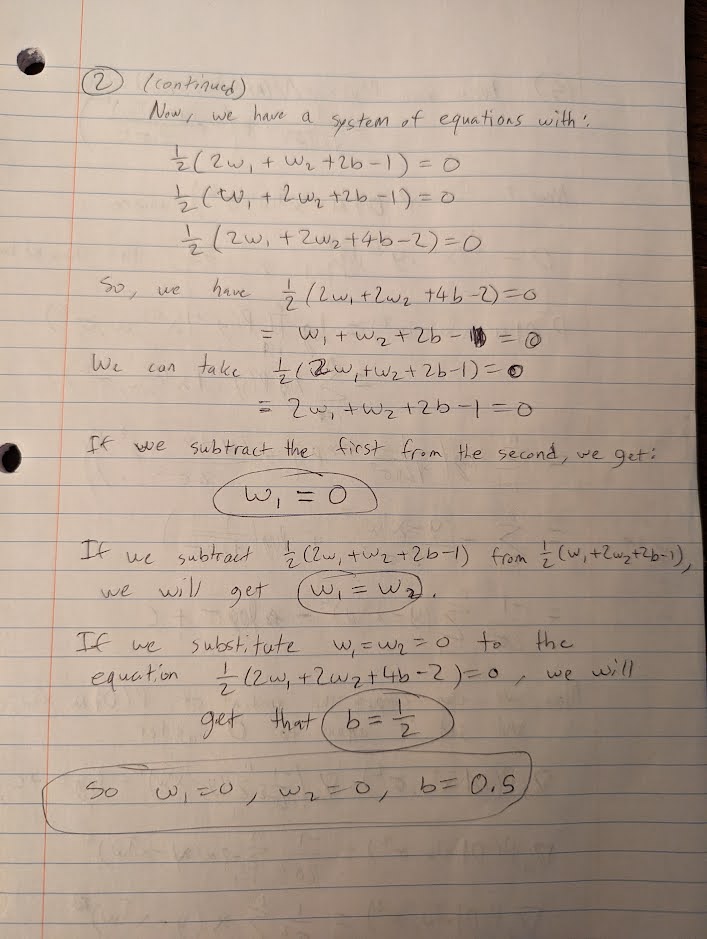 ② (continued)
Now, we have a system of equations with:
½(2w₁ + w₂ + 2b - 1) = 0
½(w₁ + 2w₂ + 2b - 1) = 0
½(2w₁ + 2w₂ + 4b - 2) = 0
So, we have ½(2w₁ + 2w₂ + 4b - 2) = 0
= w₁ + w₂ + 2b - = 0
We can take ½(2w₁ + w₂ + 2b - 1) = 0
= 2w₁ + w₂ + 2b - 1 = 0
If we subtract the first from the second, we get:
w₁ = 0
If we subtract ½(2w₁ + w₂ + 2b - 1) from ½(w₁ + 2w₂ + 2b - 1),
we will get w₁ = w₂.
If we substitute w₁ = w₂ = 0 to the
equation ½(2w₁ + 2w₂ + 4b - 2) = 0, we will
get that b = ½
So w₁ = 0, w₂ = 0, b = 0.5